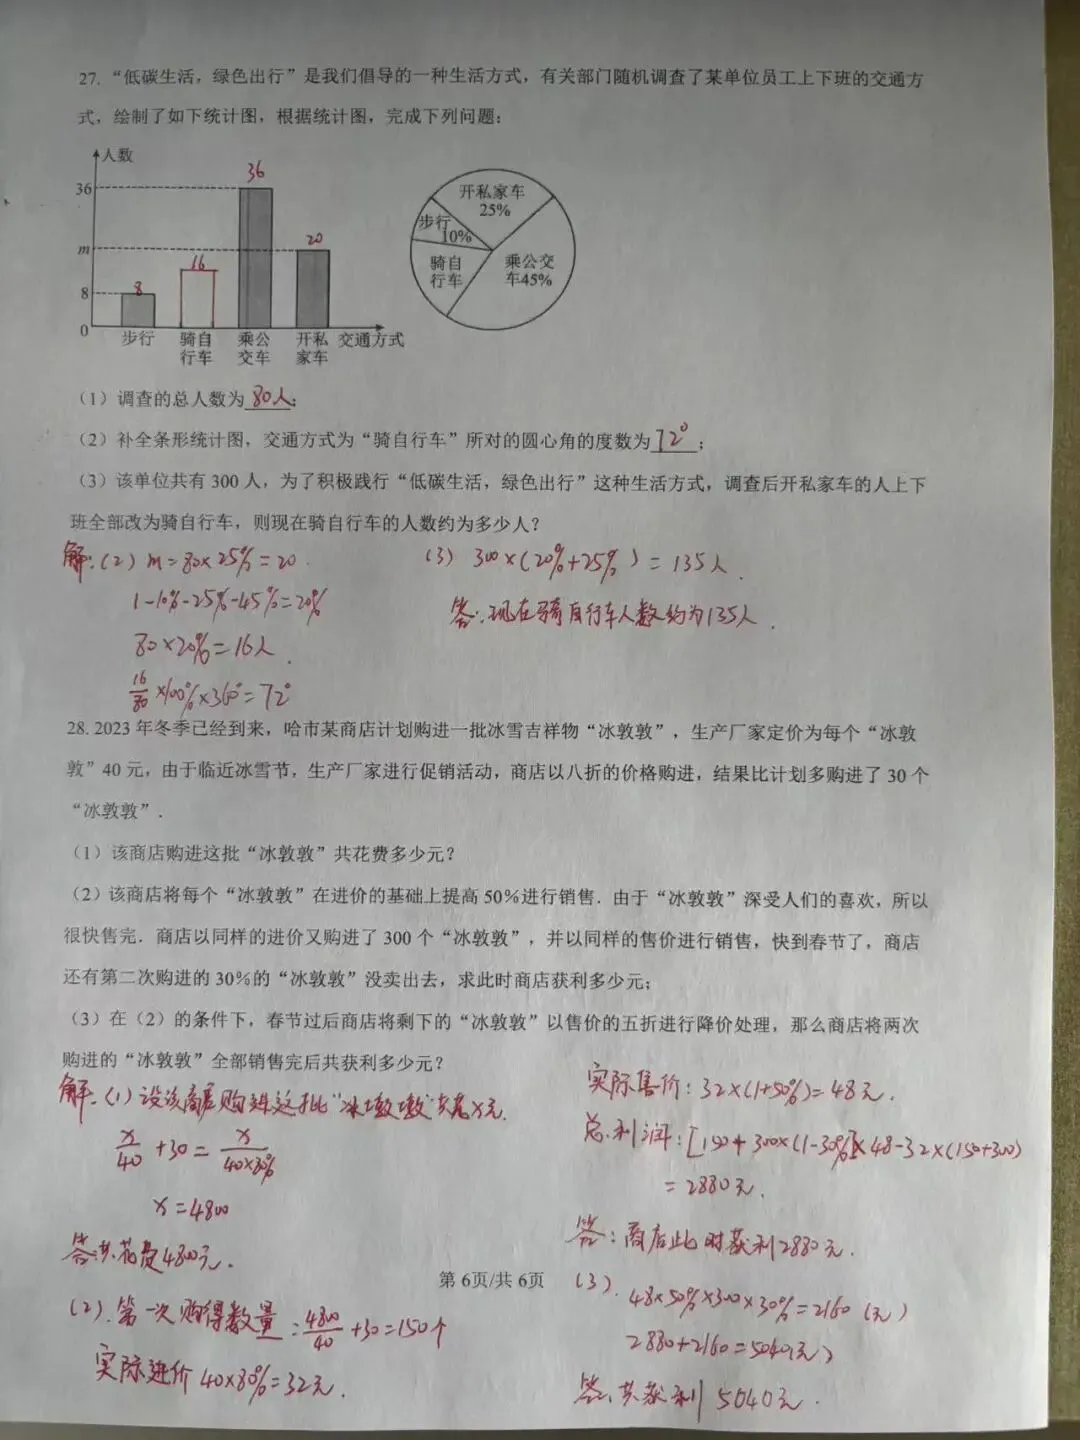 27. “低碳生活，绿色出行”是我们倡导的一种生活方式，有关部门随机调查了某单位员工上下班的交通方
式，绘制了如下统计图，根据统计图，完成下列问题：
人数
36
36
m
20
16
8
8
0
步行
骑自
行车
乘公
交车
开私
家车
交通方式
开私家车
25%
步行
10%
骑自
行车
乘公交
车45%
（1）调查的总人数为80人；
（2）补全条形统计图，交通方式为“骑自行车”所对的圆心角的度数为72°；
（3）该单位共有 300 人，为了积极践行“低碳生活，绿色出行”这种生活方式，调查后开私家车的人上下
班全部改为骑自行车，则现在骑自行车的人数约为多少人？
解：(2) m=80×25%=20.
1-10%-25%-45%=20%
80×20%=16人.
16/80×100%×360°=72°
(3) 300×(20%+25%)=135人.
答：现在骑自行车人数约为135人.
28. 2023 年冬季已经到来，哈市某商店计划购进一批冰雪吉祥物“冰敦敦”，生产厂家定价为每个“冰敦
敦”40 元，由于临近冰雪节，生产厂家进行促销活动，商店以八折的价格购进，结果比计划多购进了 30 个
“冰敦敦”.
（1）该商店购进这批“冰敦敦”共花费多少元？
（2）该商店将每个“冰敦敦”在进价的基础上提高 50%进行销售．由于“冰敦敦”深受人们的喜欢，所以
很快售完．商店以同样的进价又购进了 300 个“冰敦敦”，并以同样的售价进行销售，快到春节了，商店
还有第二次购进的 30%的“冰敦敦”没卖出去，求此时商店获利多少元；
（3）在（2）的条件下，春节过后商店将剩下的“冰敦敦”以售价的五折进行降价处理，那么商店将两次
购进的“冰敦敦”全部销售完后共获利多少元？
解：(1) 设该商店购进这批“冰墩墩”共花x元.
x/40+30=x/(40×80%)
x=4800
答：共花费4800元.
(2). 第一次购得数量=4800/40+30=150个
实际进价 40×80%=32元.
实际售价：32×(1+50%)=48元.
总利润：[150+300×(1-30%)]×48-32×(150+300)
=2880元.
答：商店此时获利2880元.
(3).
48×50%×300×30%=2160（元）
2880+2160=5040(元)
答：共获利 5040元.
第 6页/共 6页